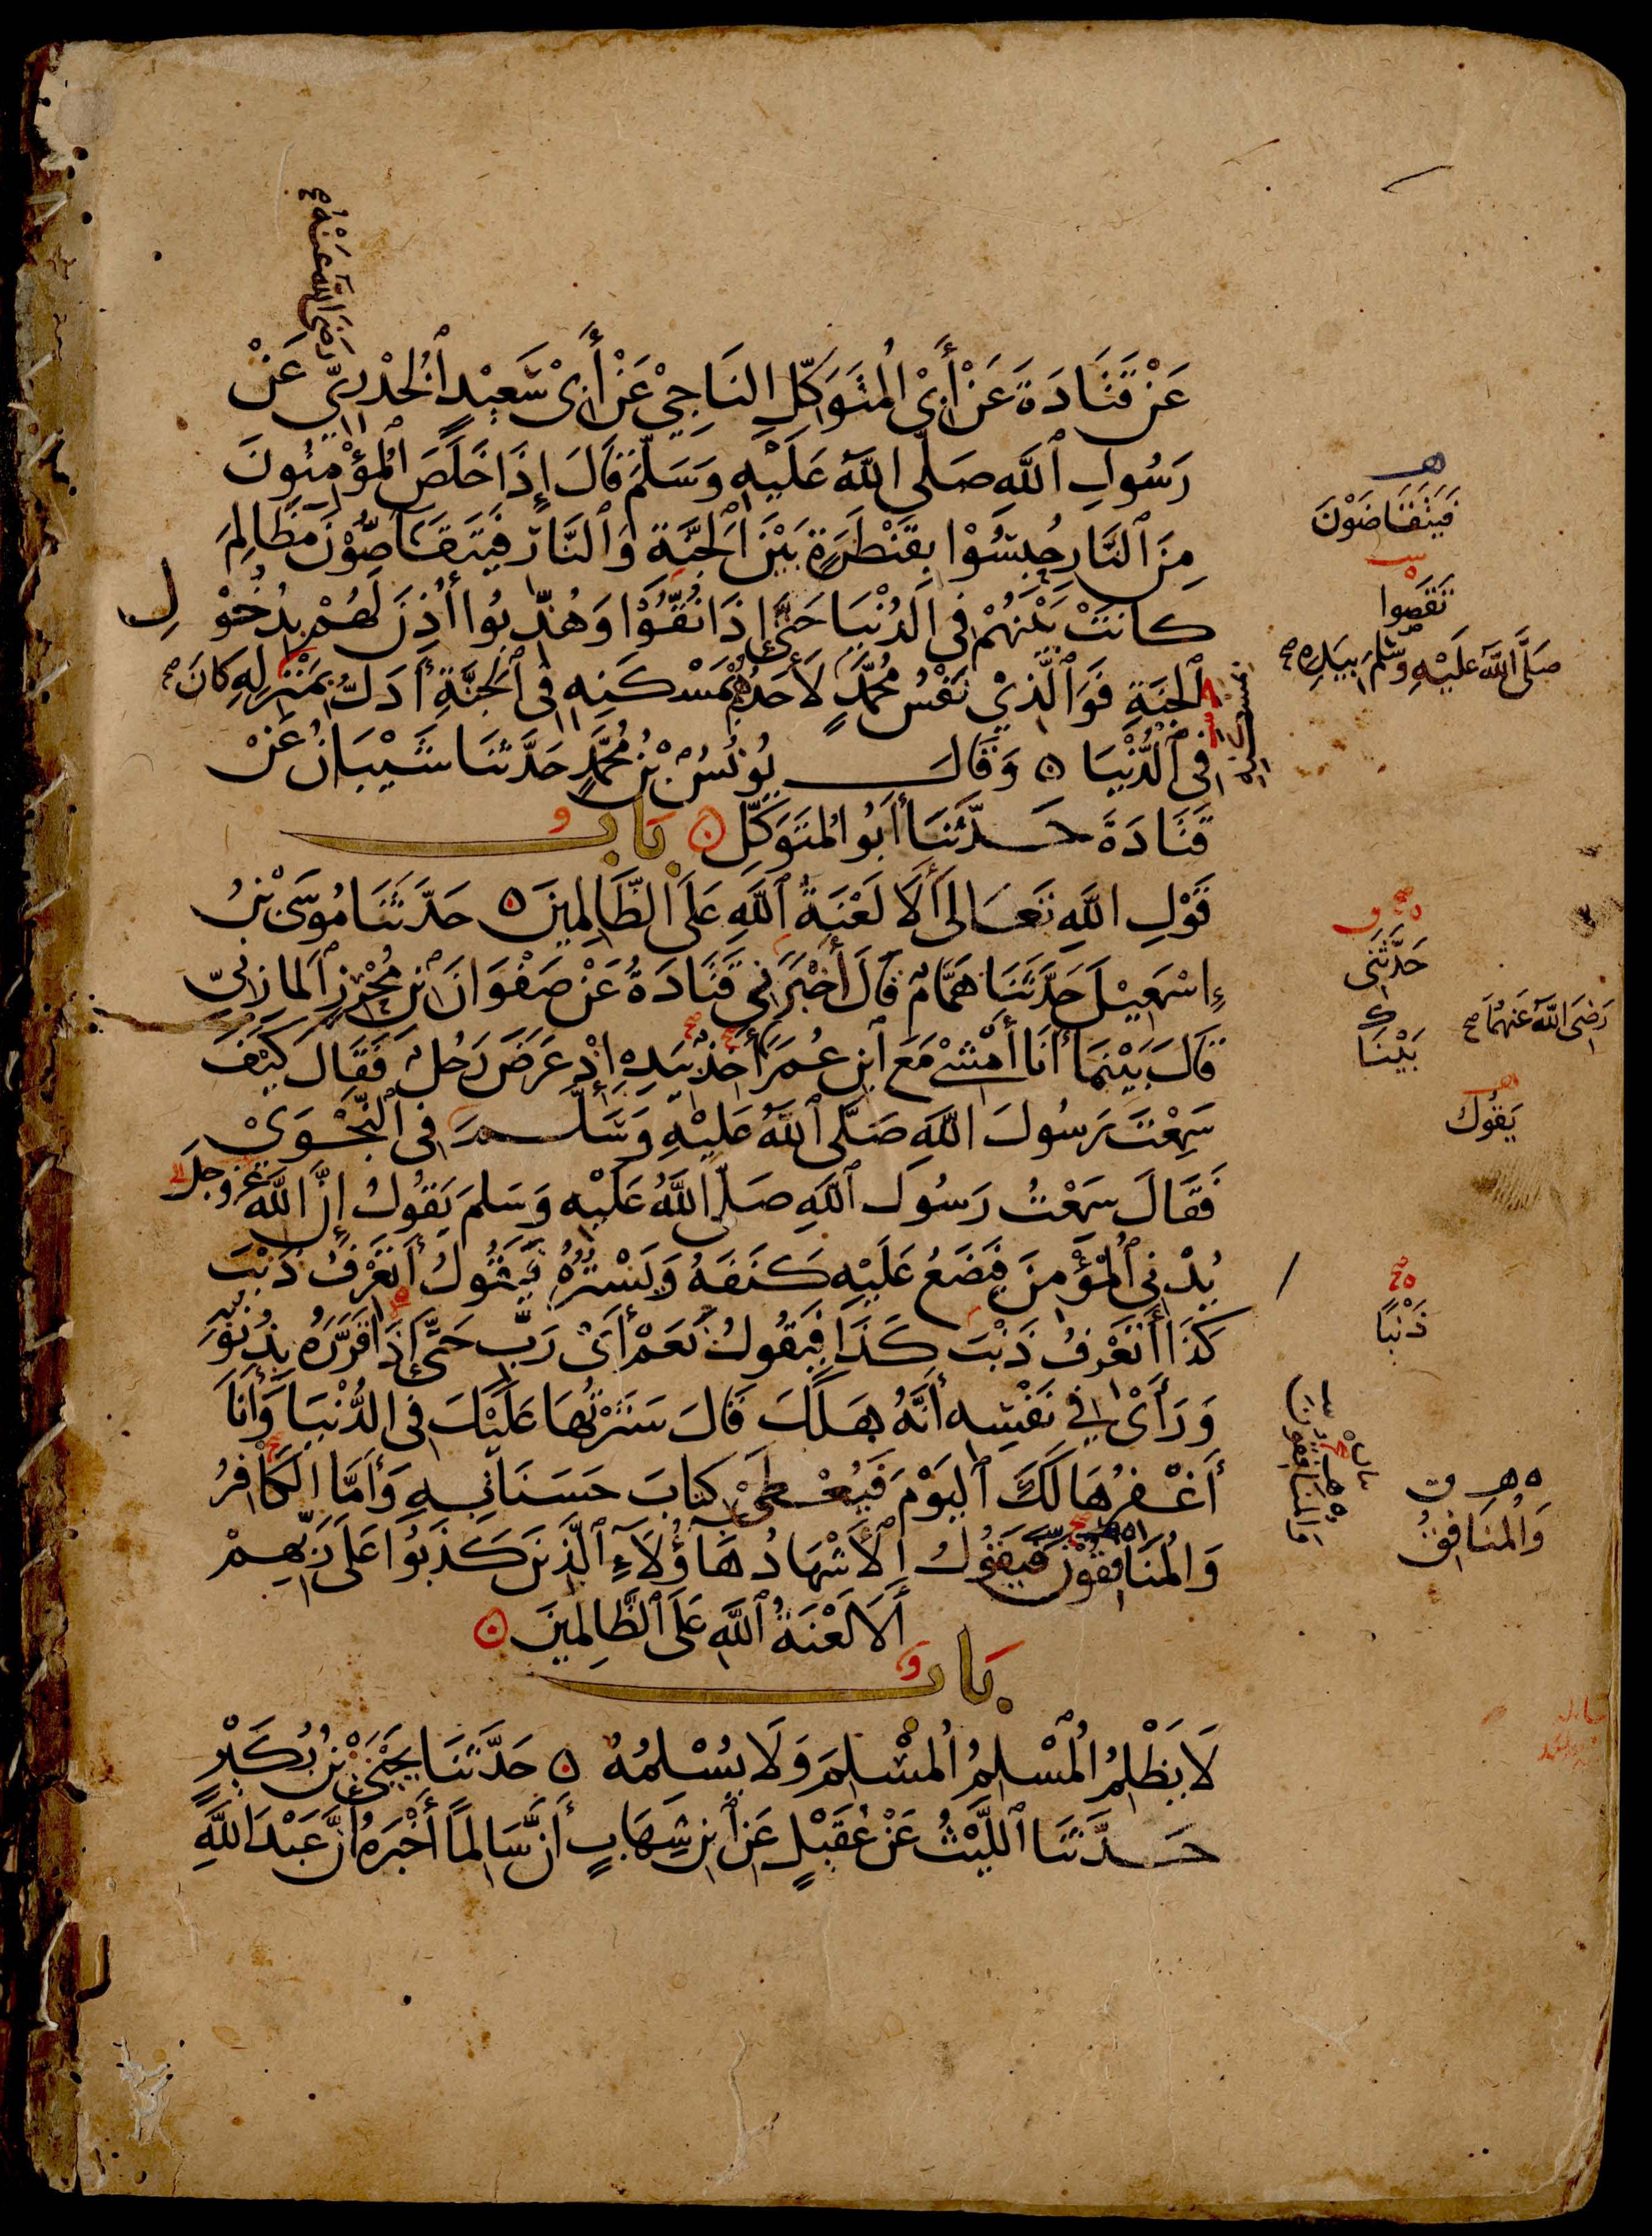 رَضِيَ اللَّهُ عَنْهُ صح
عَنْ قَتَادَةَ عَنْ أَبِي الْمُتَوَكِّلِ النَّاجِيْ عَنْ أَبِيْ سَعِيْدٍ الْخُدْرِيِّ عَنْ
رَسُولِ اللَّهِ صَلَّى اللَّهُ عَلَيْهِ وَسَلَّمَ قَالَ إِذَا خَلَصَ الْمُؤْمِنُونَ
مِنَ النَّارِ حُبِسُوْا بِقَنْطَرَةٍ بَيْنَ الْجَنَّةِ وَالنَّارِ فَيَتَقَاصُّوْنَ مَظَالِمَ
كَانَتْ بَيْنَهُمْ فِي الدُّنْيَا حَتَّى إِذَا نُقُّوْا وَهُذِّبُوا أُذِنَ لَهُمْ بِدُخُوْلِ
الْجَنَّةِ فَوَالَّذِيْ نَفْسُ مُحَمَّدٍ لَأَحَدُهُمْ بِمَسْكَنِهِ فِي الْجَنَّةِ أَدَلُّ بِمَنْزِلِهِ كَانَ صح
فِي الدُّنْيَا ۞ وَقَالَ يُونُسُ بْنُ مُحَمَّدٍ حَدَّثَنَا شَيْبَانُ عَنْ
قَتَادَةَ حَدَّثَنَا أَبُو الْمُتَوَكِّلِ ۞ بَابُ
قَوْلِ اللَّهِ تَعَالَى أَلَا لَعْنَةُ اللَّهِ عَلَى الظَّالِمِينَ ۞ حَدَّثَنَا مُوسَى بْنُ
إِسْمٰعِيْلَ حَدَّثَنَا هَمَّامٌ قَالَ أَخْبَرَنِي قَتَادَةُ عَنْ صَفْوَانَ بْنِ مُحْرِزٍ الْمَازِنِيِّ
قَالَ بَيْنَمَا أَنَا أَمْشِي مَعَ ابْنِ عُمَرَ آخِذٌ بِيَدِهِ إِذْ عَرَضَ رَجُلٌ فَقَالَ كَيْفَ
سَمِعْتَ رَسُولَ اللَّهِ صَلَّى اللَّهُ عَلَيْهِ وَسَلَّمَ فِي النَّجْوَى
فَقَالَ سَمِعْتُ رَسُولَ اللَّهِ صَلَّى اللَّهُ عَلَيْهِ وَسَلَّمَ يَقُولُ إِنَّ اللَّهَ عَزَّ وَجَلَّ
يُدْنِي الْمُؤْمِنَ فَيَضَعُ عَلَيْهِ كَنَفَهُ وَيَسْتُرُهُ فَيَقُولُ أَتَعْرِفُ ذَنْبَ
كَذَا أَتَعْرِفُ ذَنْبَ كَذَا فَيَقُولُ نَعَمْ أَيْ رَبِّ حَتَّى إِذَا قَرَّرَهُ بِذُنُوبِهِ
وَرَأَى فِي نَفْسِهِ أَنَّهُ هَلَكَ قَالَ سَتَرْتُهَا عَلَيْكَ فِي الدُّنْيَا وَأَنَا
أَغْفِرُهَا لَكَ الْيَوْمَ فَيُعْطَى كِتَابَ حَسَنَاتِهِ وَأَمَّا الْكَافِرُ
وَالْمُنَافِقُونَ فَيَقُولُ الْأَشْهَادُ هَؤُلَاءِ الَّذِينَ كَذَبُوا عَلَى رَبِّهِمْ
أَلَا لَعْنَةُ اللَّهِ عَلَى الظَّالِمِينَ ۞
بَابُ
لَا يَظْلِمُ الْمُسْلِمُ الْمُسْلِمَ وَلَا يُسْلِمُهُ ۞ حَدَّثَنَا يَحْيَى بْنُ بُكَيْرٍ
حَدَّثَنَا اللَّيْثُ عَنْ عُقَيْلٍ عَنِ ابْنِ شِهَابٍ أَنَّ سَالِمًا أَخْبَرَهُ أَنَّ عَبْدَ اللَّهِ
هـ
فَيَتَقَاضَوْنَ
تَقَصَّوا
صَلَّى اللَّهُ عَلَيْهِ وَسَلَّمَ بِيَدِهِ صح
حَدَّثَنِي
رَضِيَ اللَّهُ عَنْهُمَا صح
بَيْنَا
يَقُولُ
ذَنْبًا
وَالْمُنَافِقُونَ
ه هـ ق
وَالْمُنَافِقُ